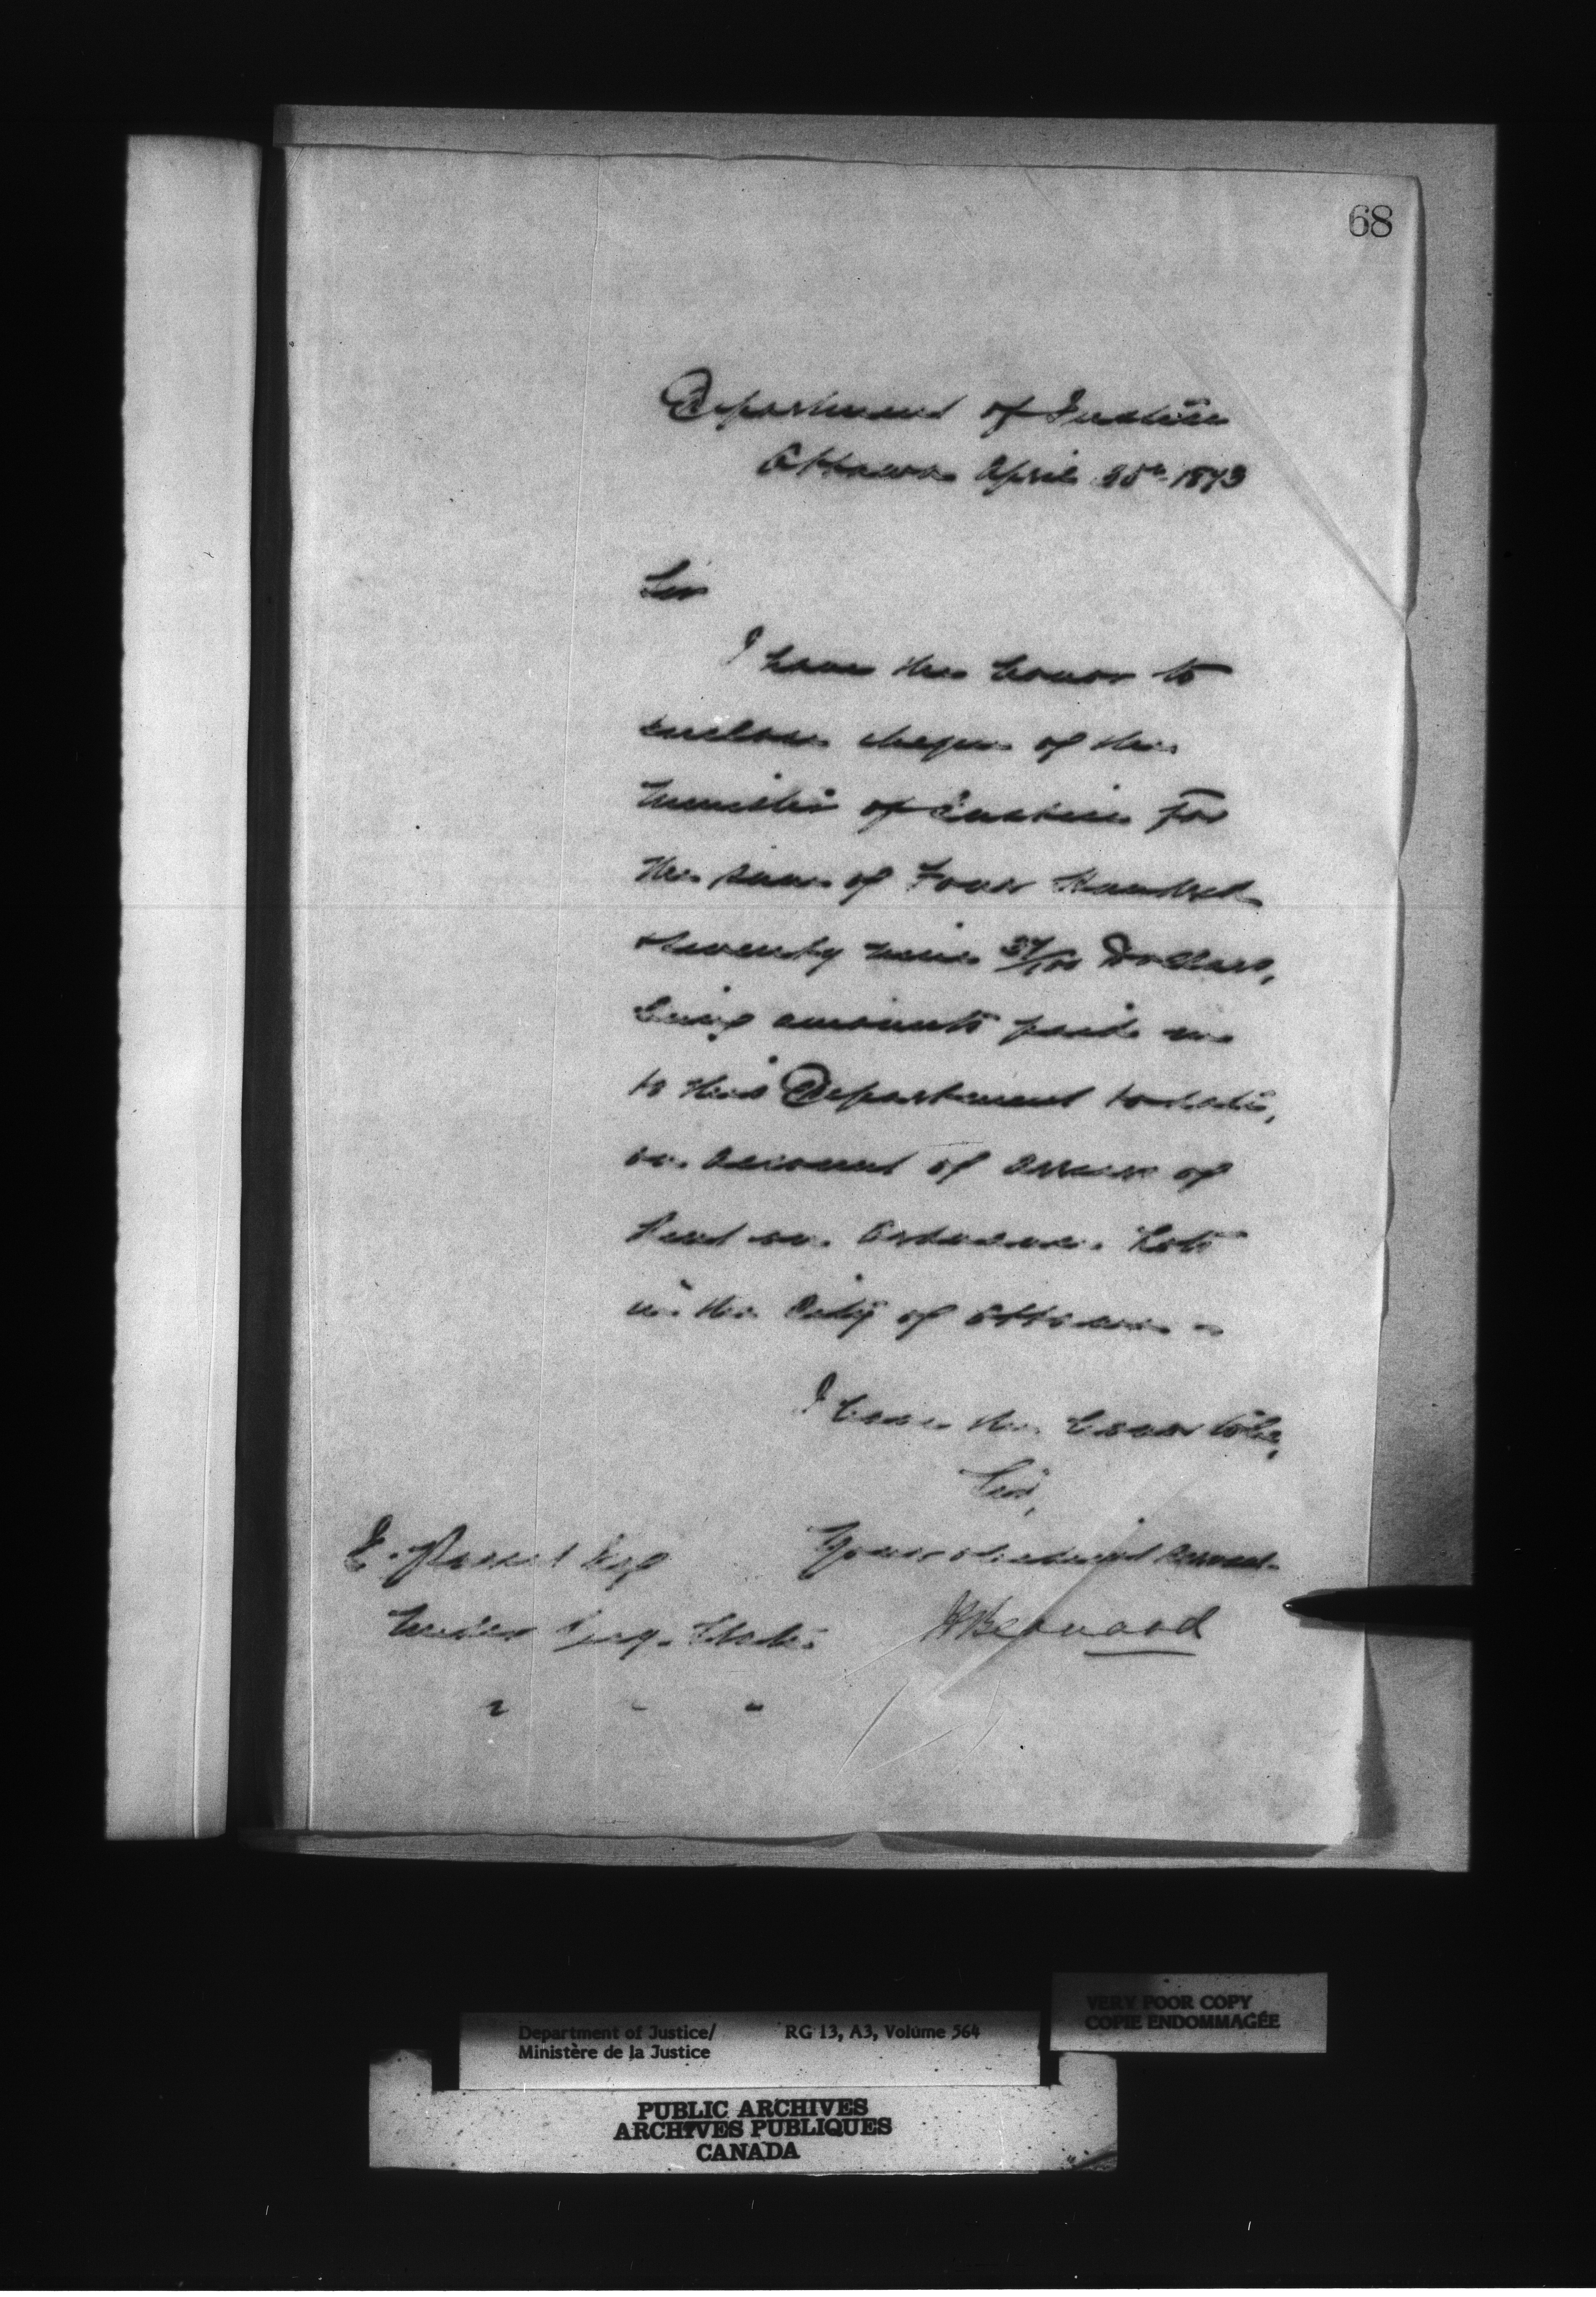 68
Department of Justice
Ottawa April 25th 1873
Sir
I have the honor to
enclose cheque of the
Minister of Justice for
the sum of Four Hundred
& twenty nine /100 Dollars,
being amounts paid in
to this Department to date,
on account of arrears of
Rent on Ordnance Lots
in the City of Ottawa
I have the honor to be,
Sir,
Your obedient servant
H Bernard
E. Parent Esq
Under Secy. State
Department of Justice/ RG 13, A3, Volume 564
Ministère de la Justice
VERY POOR COPY
COPIE ENDOMMAGÉE
PUBLIC ARCHIVES
ARCHIVES PUBLIQUES
CANADA